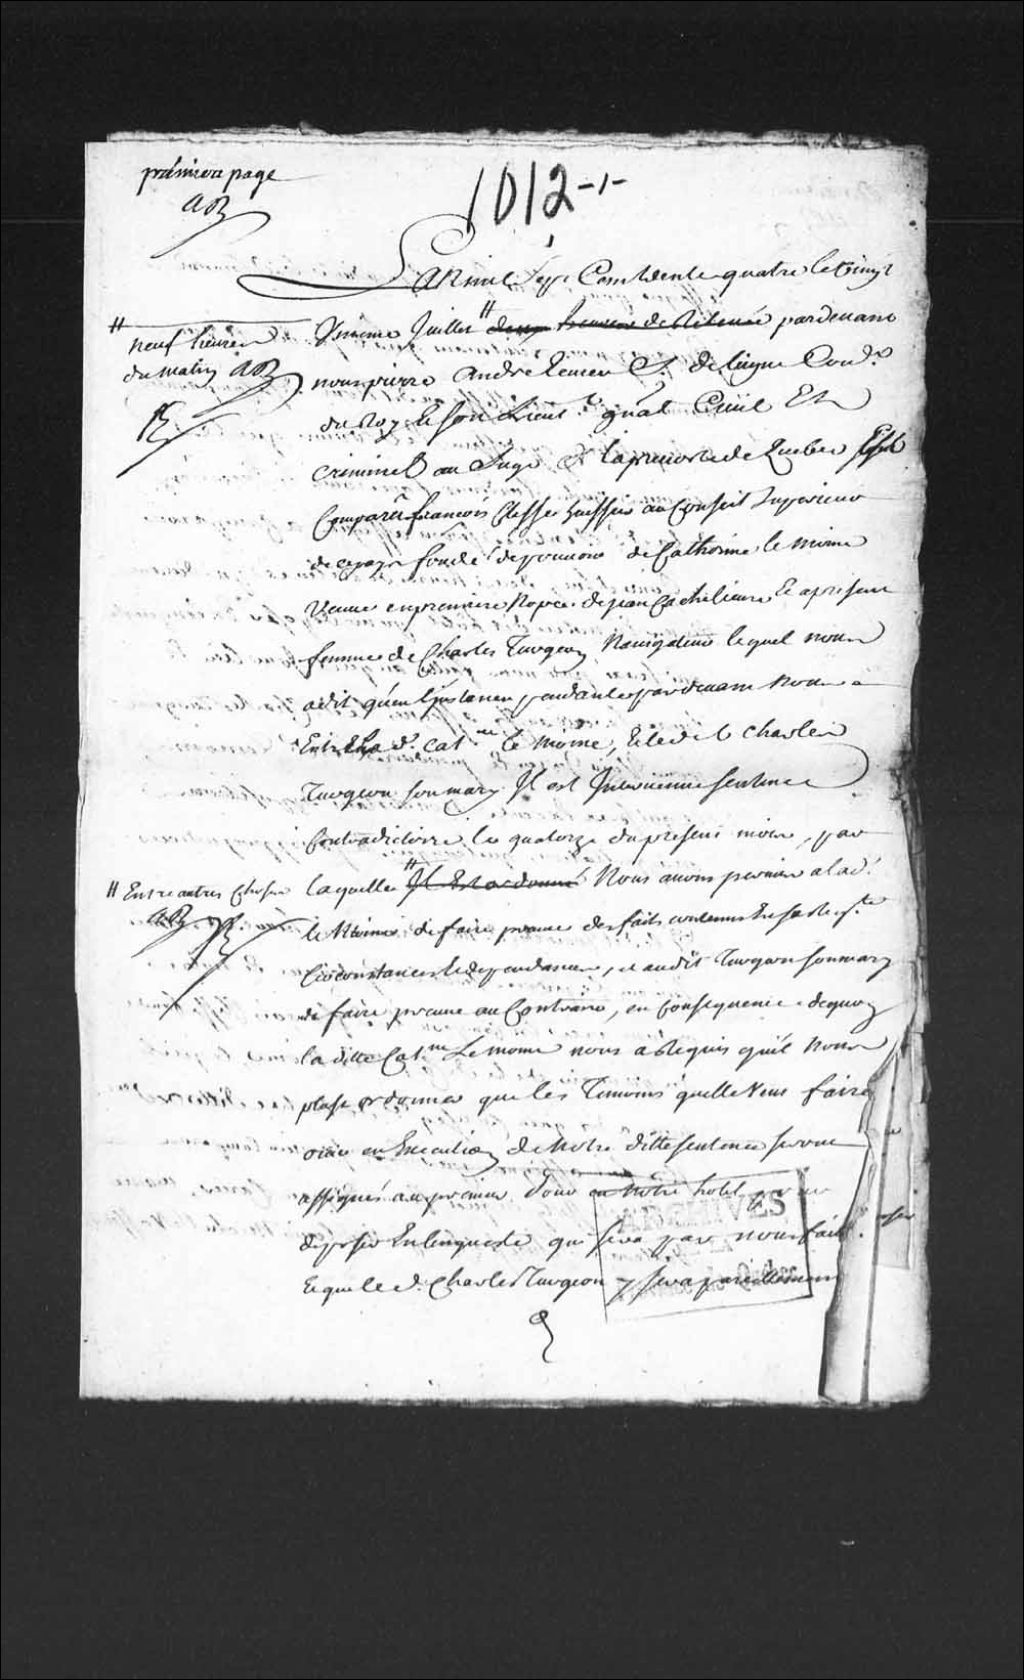 premiere page
1012-1-
L'an mil sept Cent trente quatre le vingt
# neuf heures
du matin AR
Unieme Juillet # deux heures de Relevée pardevant
nous pierre André Ecuier Sr. de leigne Con.er
du Roy et son Lieut.t gnal Civil Et
Criminel au siege de la prevosté de Quebec Est
Comparu francois Clesse huissier au Conseil Superieur
de ce pays fondé de pouvoir de Catherine le Moine
Veuve en premiere Nopce de jean Cachelievre et a present
femme de Charles Turgeon Navigateur lequel nous
a dit qu'en l'instance pendante pardevant Nous
Entre la d. Cat.ne le Moine, et led. Charles
Turgeon son mary Il est Intervenue sentence
Contradictoire le quatorze du present mois, par
# Entre autres Choses
laquelle # Il Est ordonné Nous avons permis a lad.
le Moine de faire preuve des faits contenus En sa Req.te
Circonstances et dependances, et audit Turgeon son mary
de faire preuve au Contraire, en Consequence dequoy
la ditte Cat.ne Le moine nous a Requis qu'il Nous
plaise ordonner que les Temoins qu'elle Veut faire
ouir en Execution de Notre ditte sentence seront
assignés au premier jour en Nôtre hotel pour
deposer En lenqueste qui sera par nous faite
Et que le d. Charles Turgeon y sera pareillement
ARCHIVES